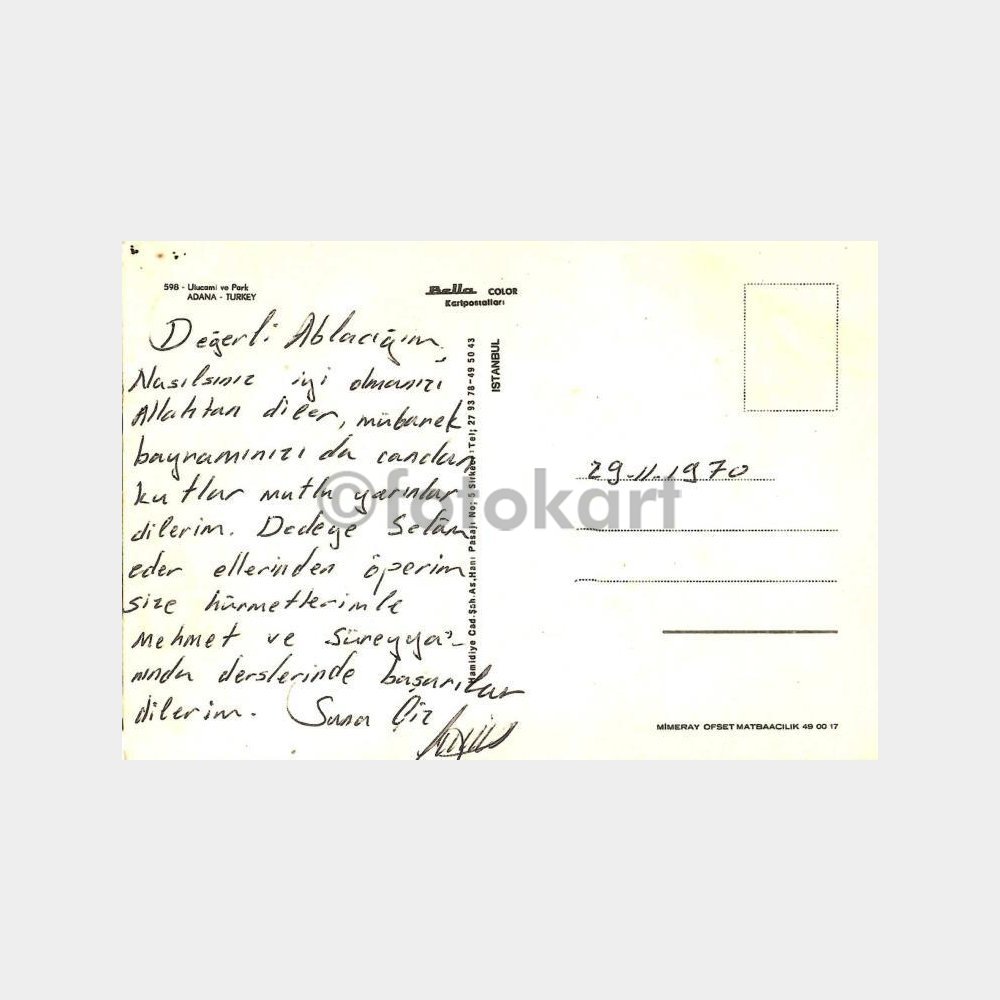 598 - Ulucami ve Park
ADANA - TURKEY
Bella COLOR
Kartpostalları
Değerli Ablacığım,
Nasılsınız iyi olmanızı
Allahtan diler, mübarek
bayramınızı da candan
kutlar mutlu yarınlar
dilerim. Dedeye Selâm
eder ellerinden öperim
size hürmetlerimle
Mehmet ve Süreyya'-
nında derslerinde başarılar
dilerim. Suna
Hamidiye Cad. Şah. As. Hanı Pasajı No; 5 Sirkeci Tel; 27 93 78-49 50 43
ISTANBUL
29-11-1970
©fotokart
MİMERAY OFSET MATBAACILIK 49 00 17